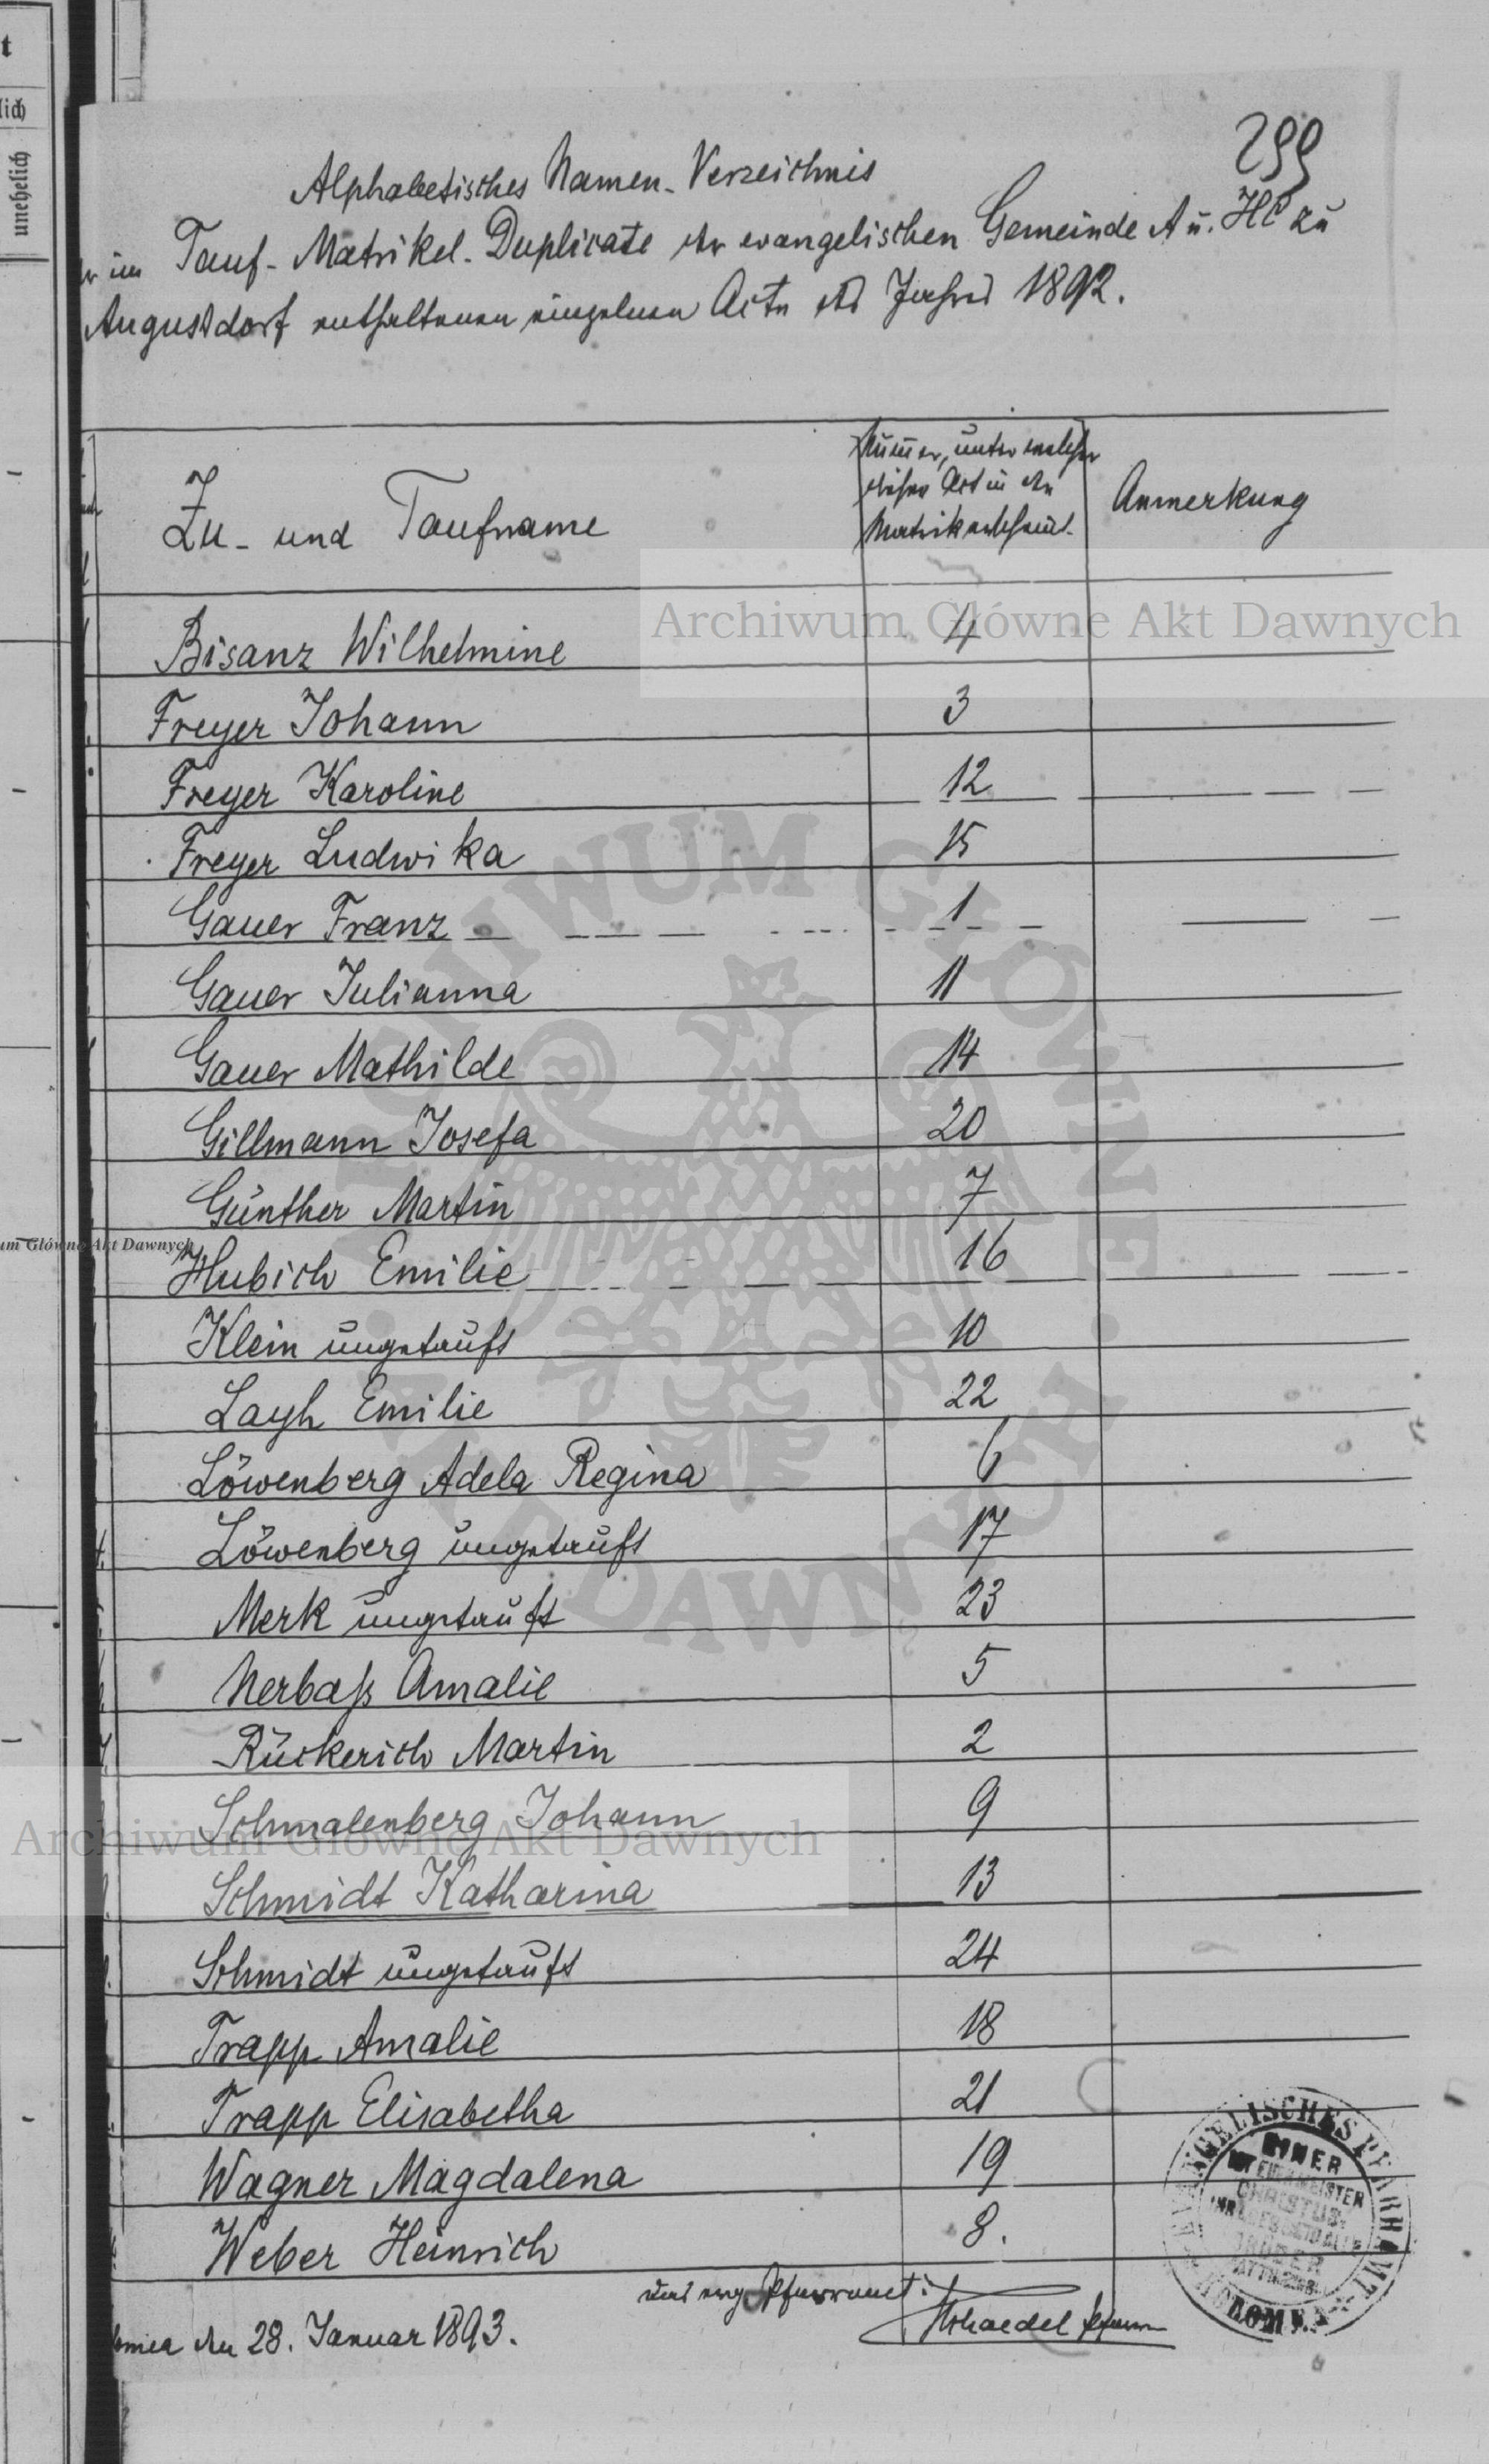 t
lich
unehelich
299
Alphabetisches Namen-Verzeichnis
im Tauf-Matrikel-Duplicate der evangelischen Gemeinde A u. HC zu
Augustdorf enthaltenen einzelnen Acte des Jahres 1892.
Zu- und Taufname
Nummer, unter welcher
dieser Act in der
Matrik erscheint.
Anmerkung
Archiwum Główne Akt Dawnych
Bisanz Wilhelmine 4
Freyer Johann 3
Freyer Karoline 12
Freyer Ludwika 15
Gauer Franz 1
Gauer Julianna 11
Gauer Mathilde 14
Gillmann Josefa 20
Günther Martin 7
um Główne Akt Dawnych
Hubich Emilie 16
Klein ungetauft 10
Layh Emilie 22
Löwenberg Adela Regina 6
Löwenberg ungetauft 17
Merk ungetauft 23
Nerbaß Amalie 5
Rückerich Martin 2
Schmalenberg Johann 9
Archiwum Główne Akt Dawnych
Schmidt Katharina 13
Schmidt ungetauft 24
Trapp Amalie 18
Trapp Elisabetha 21
Wagner Magdalena 19
Weber Heinrich 8.
ARCHIWUM GŁÓWNE AKT DAWNYCH
EVANGELISCHES PFARRAMT
EINER
IST EUER MEISTER
CHRISTUS
IHR ABER SEID ALLE
BRÜDER
Pfarramt:
den 28. Januar 1893.